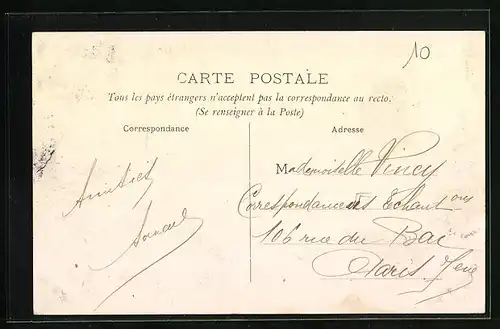 10
CARTE POSTALE
Tous les pays étrangers n'acceptent pas la correspondance au recto.
(Se renseigner à la Poste)
Correspondance
Adresse
Amitiés
Mademoiselle Viney
Correspondance et Echantons
106 rue du Bac
Paris 7eme